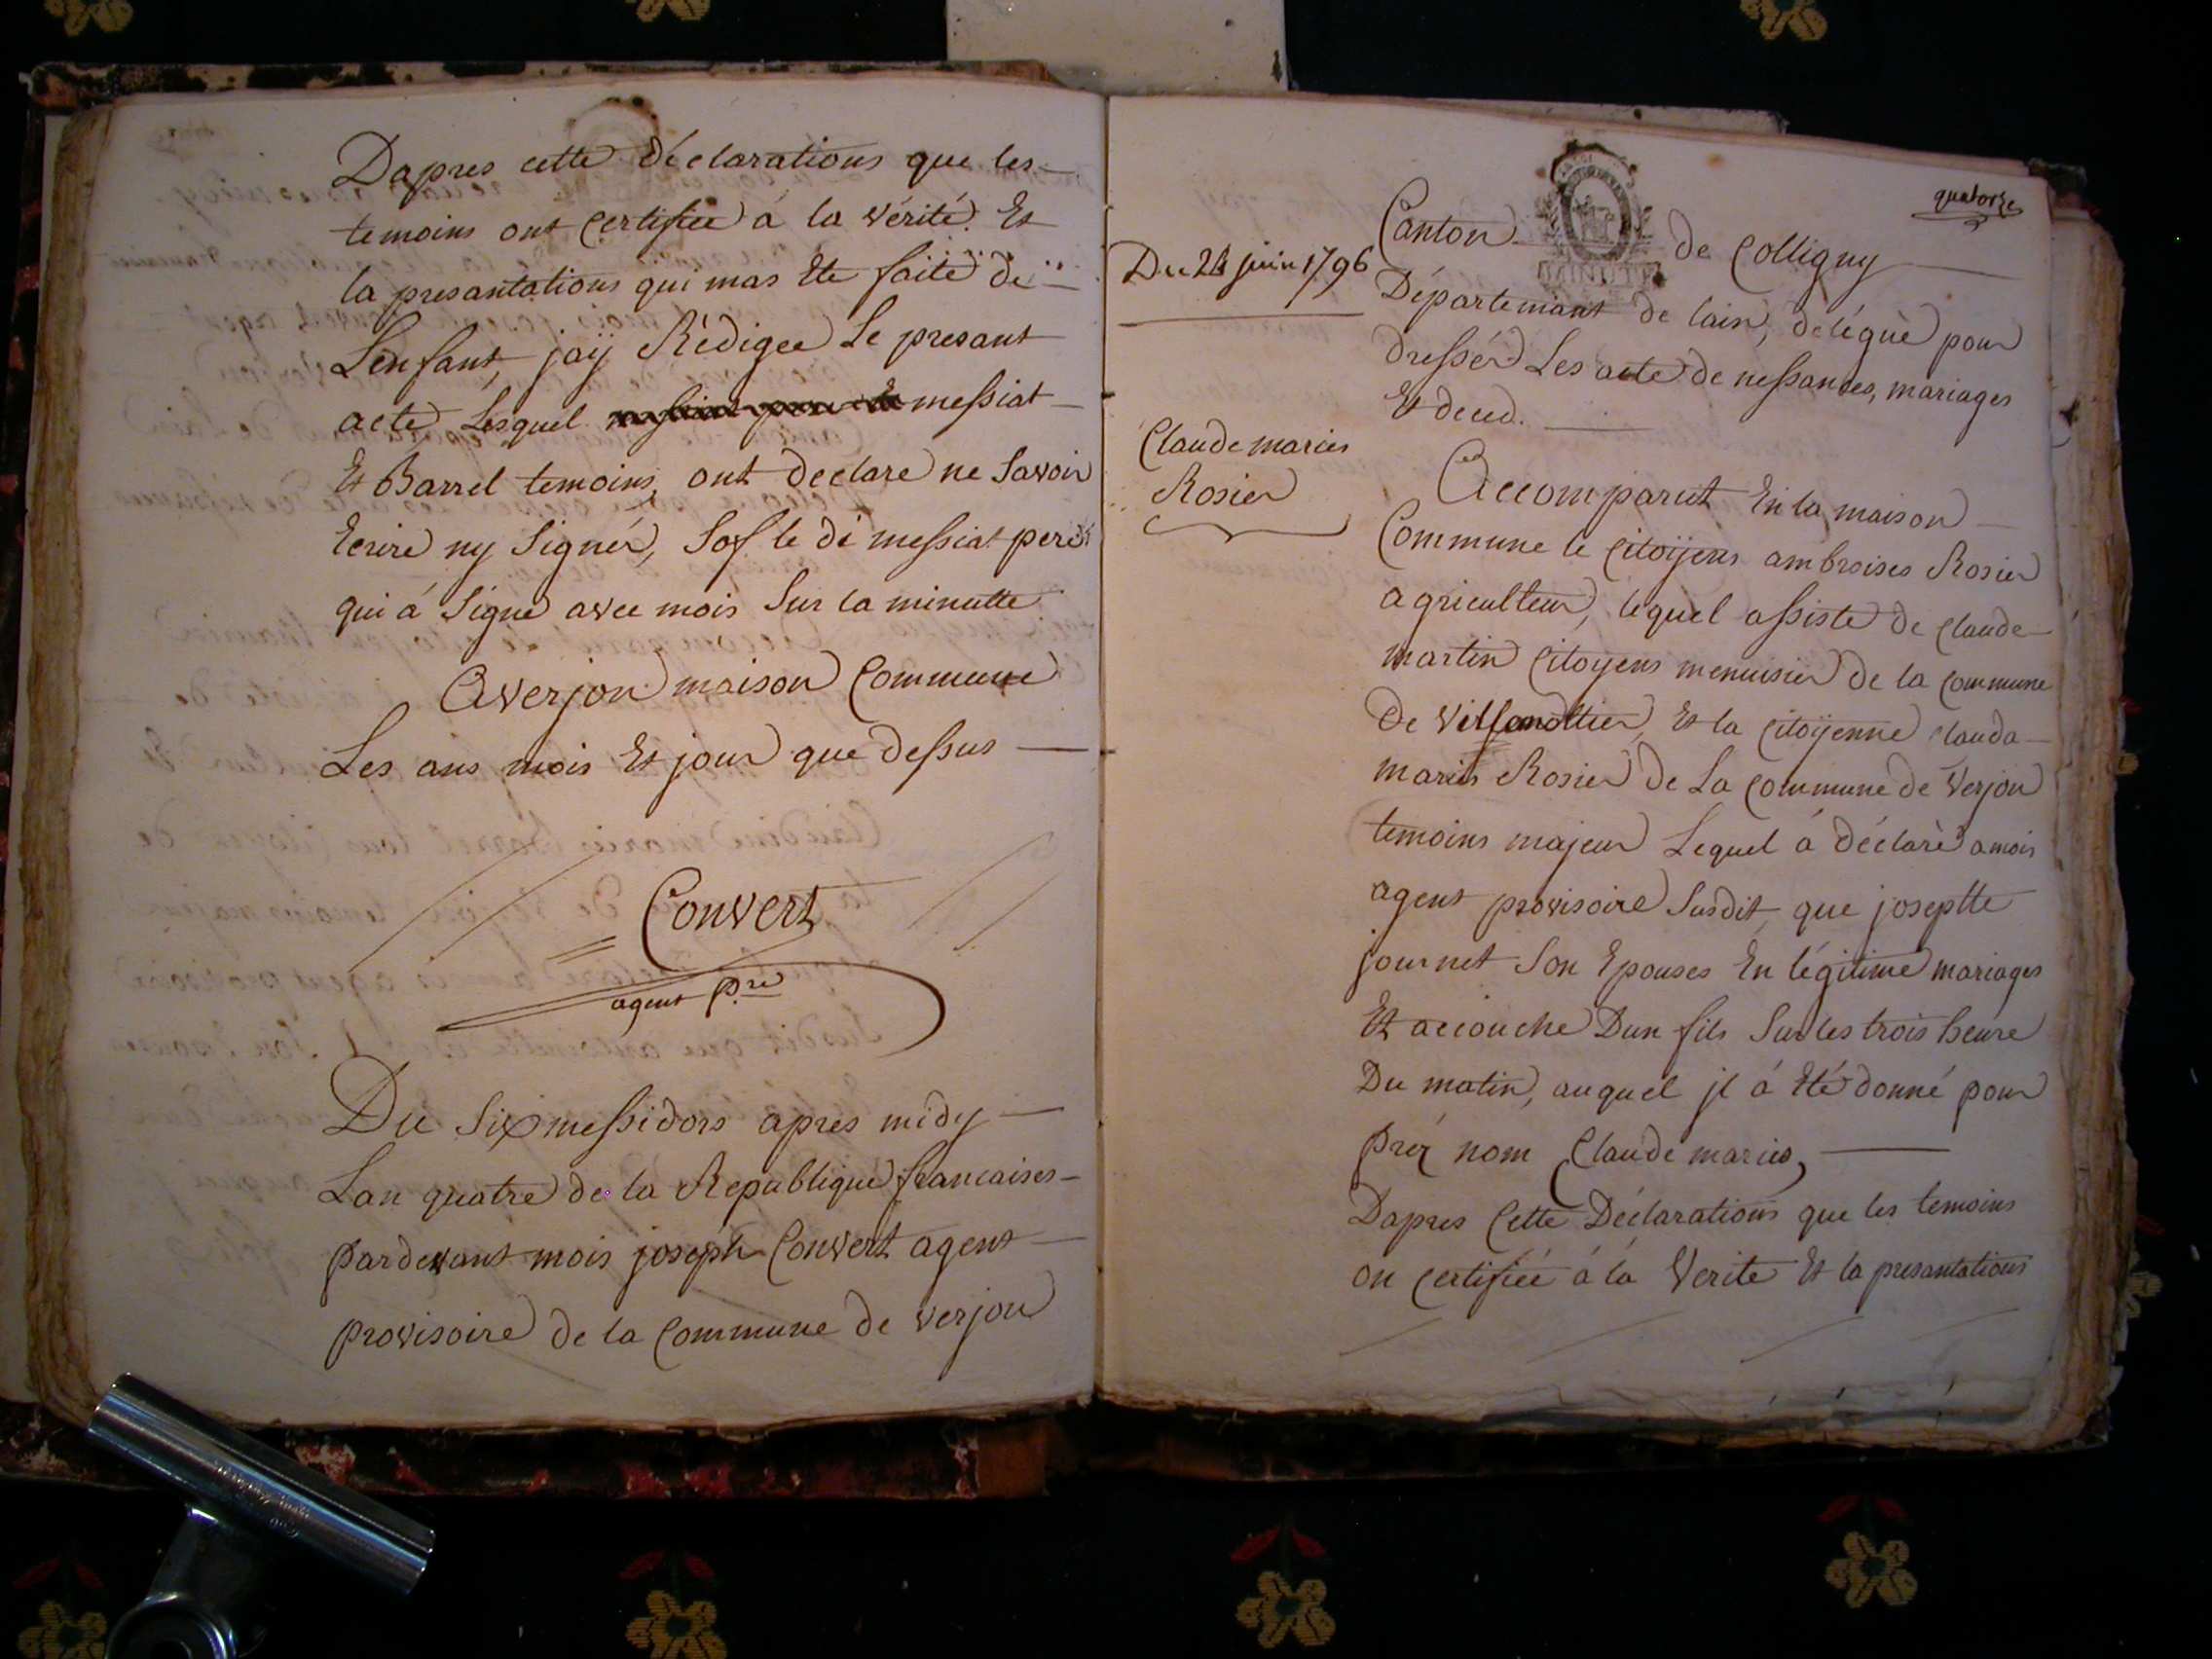 Dapres cette déclarations que les
temoins ont certifiee á la vérité. Et
la presantations qui mas Ete faite de
Lenfant, jaÿ Rédigee Le presant
acte, Lesquel messiat
Et Barrel temoins, ont declare ne Savoir
Ecrire ny Signér, Sof le di messiat pere
qui á Signe avec mois Sur la minutte
Averjon maison Commune
Les ans mois Et jour que dessus
Convert
agent Pre
Du Six messidors apres midy
Lan quatre de la Republique francaises
pardevant mois joseph Convert agent
provisoire de la Commune de verjon
quatorze
Canton de Colligny
MINUTE
Du 24 juin 1796
Département de lain, delégué pour
dressér Les acte de nessances, mariages
Et deced.
Claude maries
Rosier
Accomparut En la maison
Commune le Citoÿens ambroises Rosier
agriculteur, lequel assiste de Claude
martin Citoyens menuisier de la commune
de Et la Citoÿenne Clauda
maries Rosier de La Commune de Verjon
temoins majeur Lequel á déclaré amois
agent provisoire Susdit, que joseptte
journet Son Epouses En légitime mariages
Et accouche Dun fils Sur les trois heure
Du matin, auquel jl á Eté donné pour
Pré nom Claude maries,
Dapres Cette Déclarations que les temoins
on certifiée á la Verite Et la presantations